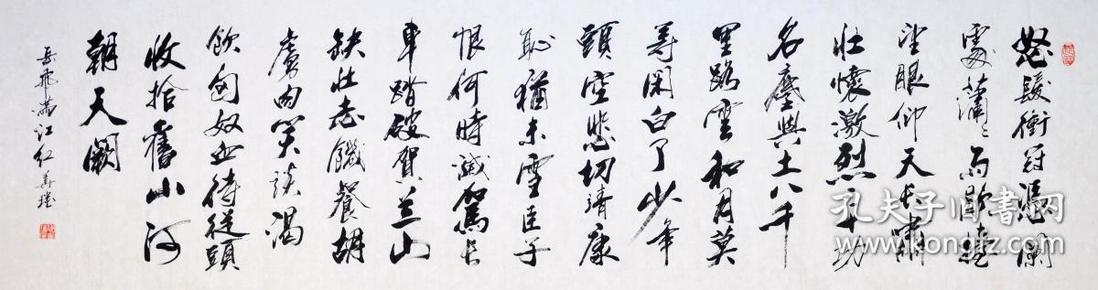 怒髮衝冠憑闌
處瀟瀟雨歇擡
望眼仰天長嘯
壯懷激烈三十功
名塵與土八千
里路雲和月莫
等閑白了少年
頭空悲切靖康
恥猶未雪臣子
恨何時滅駕長
車踏破賀兰山
缺壯志饑餐胡
虜肉笑談渴
飲匈奴血待從頭
收拾舊山河
朝天闕
岳飛滿江紅
孔夫子旧书网
www.kongfz.com